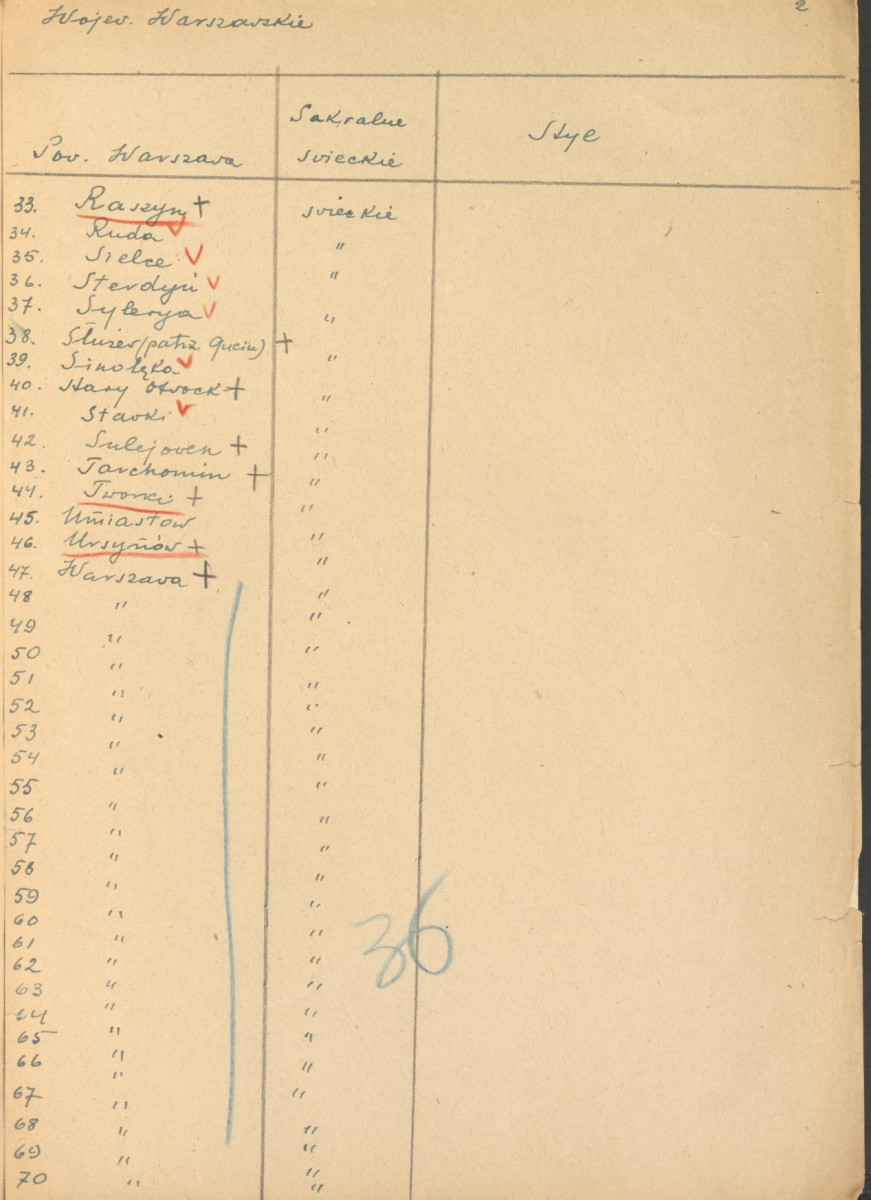 Wojew. Warszawskie
2
Pow. Warszawa
Sakralne
świeckie
Styl
33. Raszyn + świeckie
34. Ruda "
35. Sielce "
36. Sterdyń "
37. Sylerya "
38. Służew (patrz Gucin) + "
39. Sinołęka "
40. Stary Otwock + "
41. Stawki "
42. Sulejowek + "
43. Tarchomin + "
44. Tworki + "
45. Umiastów "
46. Ursynów + "
47. Warszawa + "
48 " "
49 " "
50 " "
51 " "
52 " "
53 " "
54 " "
55 " "
56 " "
57 " "
58 " "
59 " "
60 " "
61 " "
62 " "
63 " "
64 " "
65 " "
66 " "
67 " "
68 " "
69 " "
70 " "
36